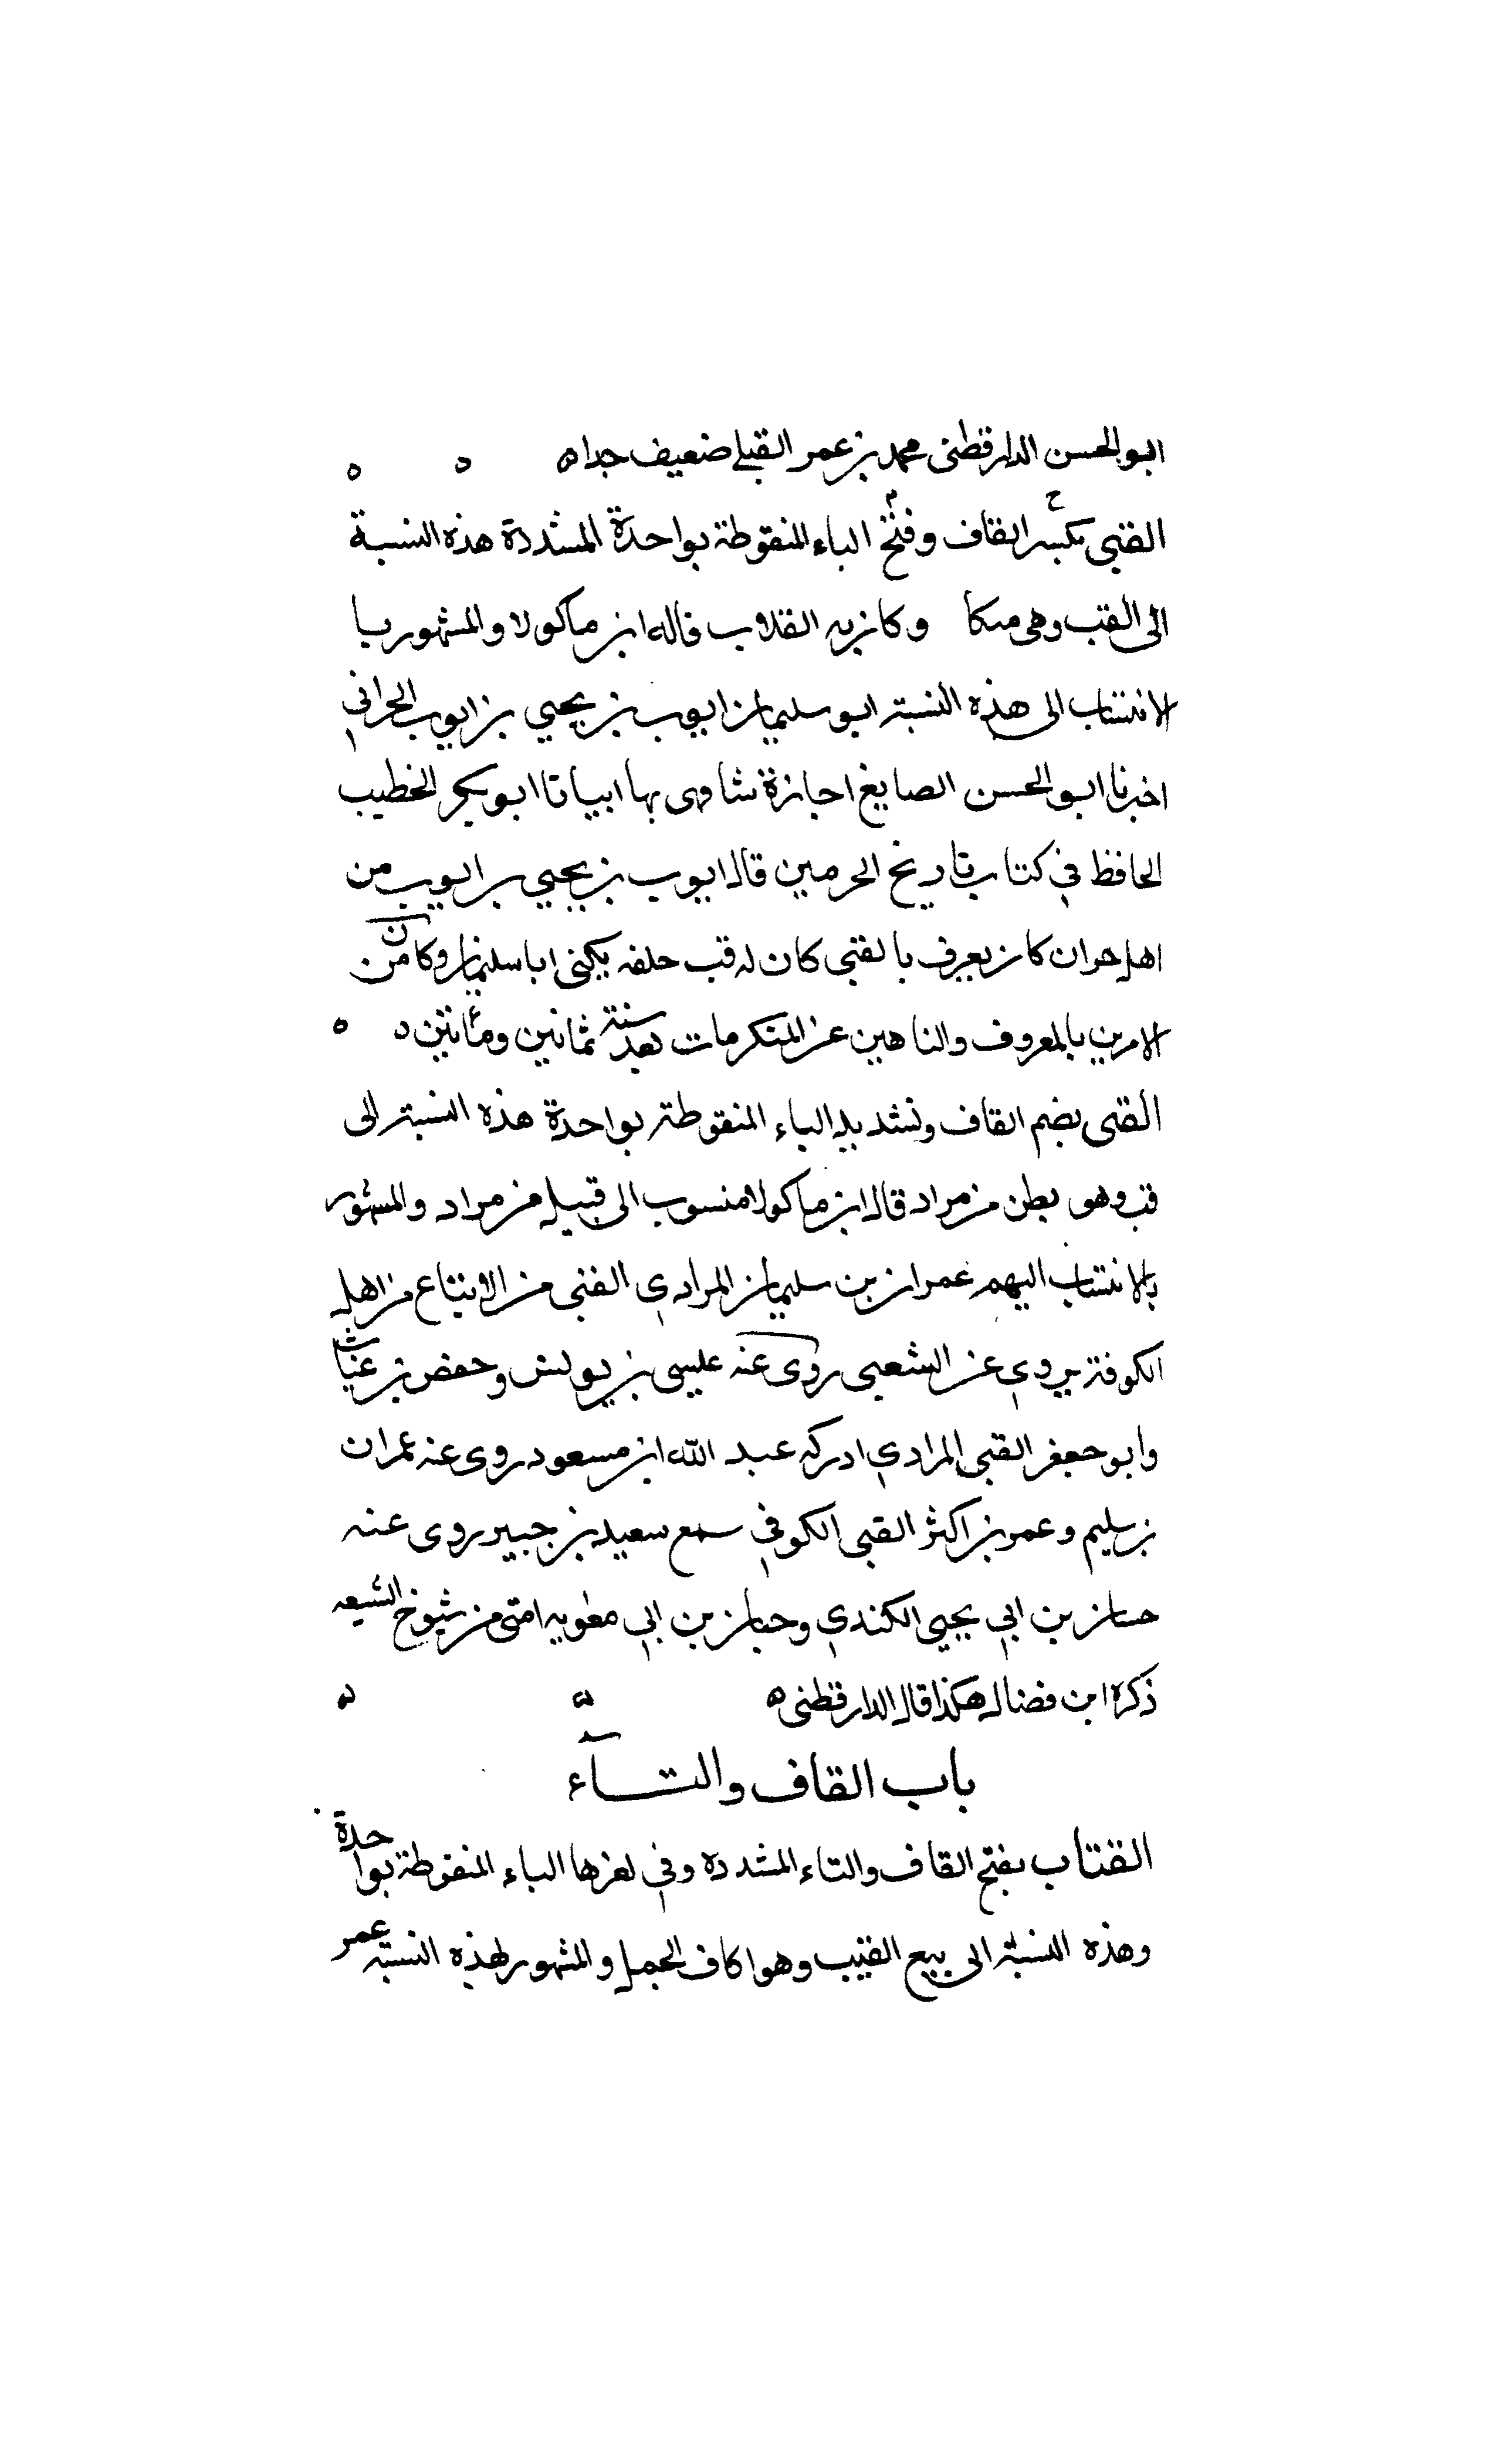 ابو الحسن الدارقطنى محمد بن عمر القبلى ضعيف جدا ه ه ه
القبى بكسر القاف وفتح الباء المنقوطة بواحدة المشددة هذه النسبة
الى القب وهى مكا وكانزيه القلاب قاله ابن ماكولا والمشهور با
لانتساب الى هذه النسبة ابو سليمان ايوب بن يحيي بن ايوب الحرانى
اخبرنا ابو الحسن الصايغ اجازة شافهى بها ابياتا ابو بكر الخطيب
الحافظ في كتاب تاريخ الحرمين قال ايوب بن يحيي بن ايوب من
اهل حران كان يعرف بالقبى كان له قب حلفه يكنى ابا سليمان وكان من
الامرين بالمعروف والناهين عن المنكرمات بعد سنة ثمانين ومائتين ه ه
القبى بضم القاف وتشديد الباء المنقوطة بواحدة هذه النسبة الى
قب وهو بطن من مراد قال ابن ماكولا منسوب الى قبيله من مراد والمشهور
بالانتساب اليهم عمران بن سليمان المرادي القبى من الاتباع من اهل
الكوفة يروي عن الشعبى روى عنه عيسى بن يونس وحفص بن غياث
وابو جعفر القبى المرادي ادرك عبد الله ابن مسعود روى عنه عمران
بن سليم وعمر بن اكثر القبى الكوفي سمع سعيد بن جبير روى عنه
حسان بن ابي يحيى الكندي وحبان بن ابي معويه امتى من شيوخ الشيعه
ذكره ابن فضال هكذا قال الدارقطنى ه ه ه
باب القاف والتاء
القتاب بفتح القاف والتاء المشدده وفي لغزها الباء المنقوطة بواحدة
وهذه النسبة الى بيع القتب وهو اكاف الجمل والمشهور لهذه النسبة عمر